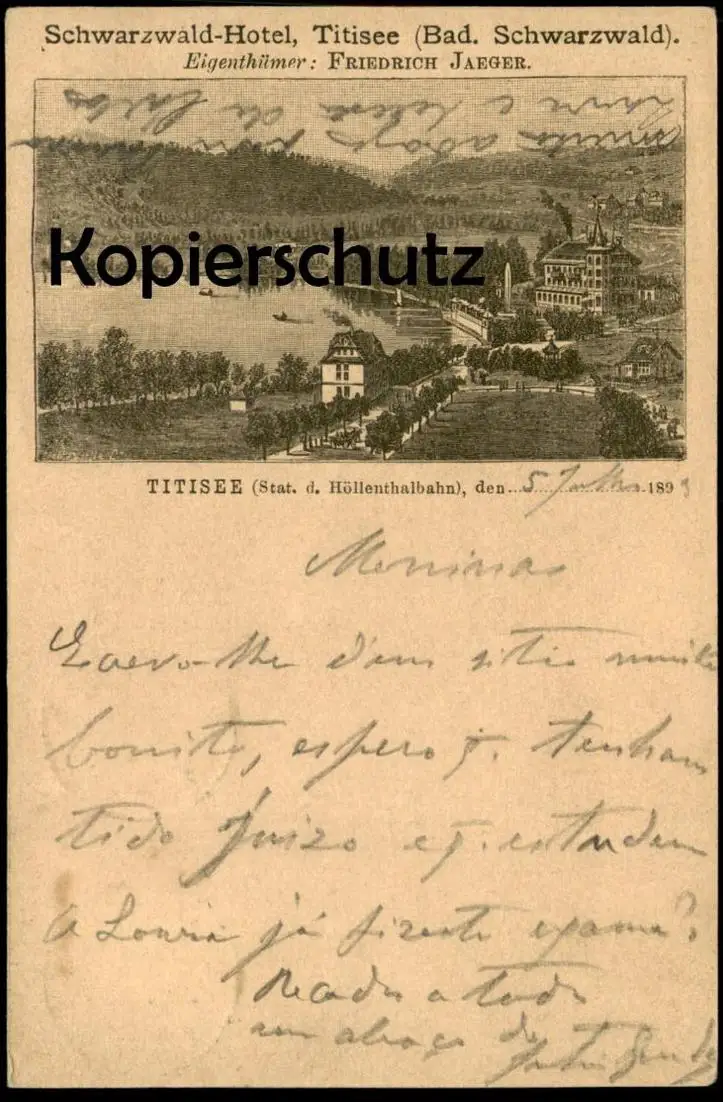 Schwarzwald-Hotel, Titisee (Bad. Schwarzwald).
Eigenthümer: FRIEDRICH JAEGER.
Kopierschutz
TITISEE (Stat. d. Höllenthalbahn), den 5 Julho 1893
Meninas
Escrevo-lhe d'um sitio muito
bonito, espero q. tenham
tido Juizo e q. estudem
A Louria já fizeste exame?
Recados a todos
um abraço do